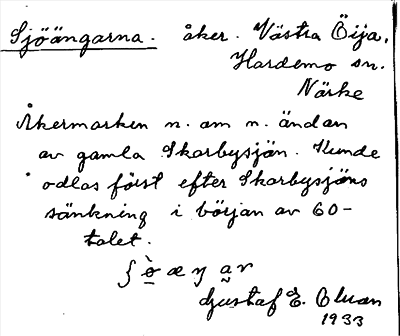 Sjöängarna. åker. Västra Öija,
Hardemo sn.
Närke
Åkermarken n. om n. ändan
av gamla Skarbysjön. Kunde
odlas först efter Skarbysjöns
sänkning i början av 60-
talet.
Gustaf E.
1933